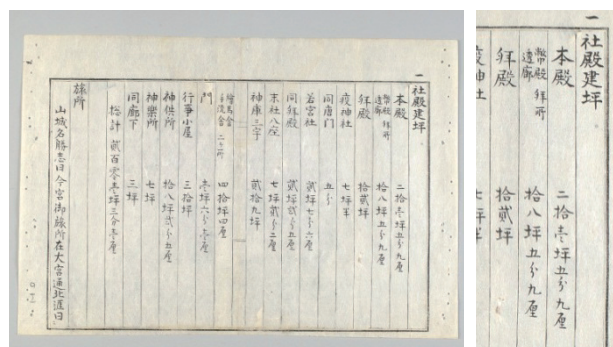 一
社殿建坪
本殿 二拾壱坪五分九厘
幣殿 拝所
透廊 拾八坪五分九厘
拝殿 拾貳坪
疫神社 七坪半
同唐門 五分
若宮社 貳坪七分六厘
同拝殿 貳坪貳分五厘
末社八座 七坪貳分二厘
神庫三字 貳拾九坪
絵馬舎
手洗舎 二ヶ所 四拾坪四厘
門 壱坪六分壱厘
行事小屋 三拾坪
神供所 拾八坪貳分五厘
神楽所 七坪
同廊下 三坪
総計 貳百零壱坪三分壱厘
旅所
山城名勝志曰今宮御旅所在大宮通北涯日
一
社殿建坪
本殿 二拾壱坪五分九厘
幣殿 拝所
透廊 拾八坪五分九厘
拝殿 拾貳坪
疫神社 七坪半